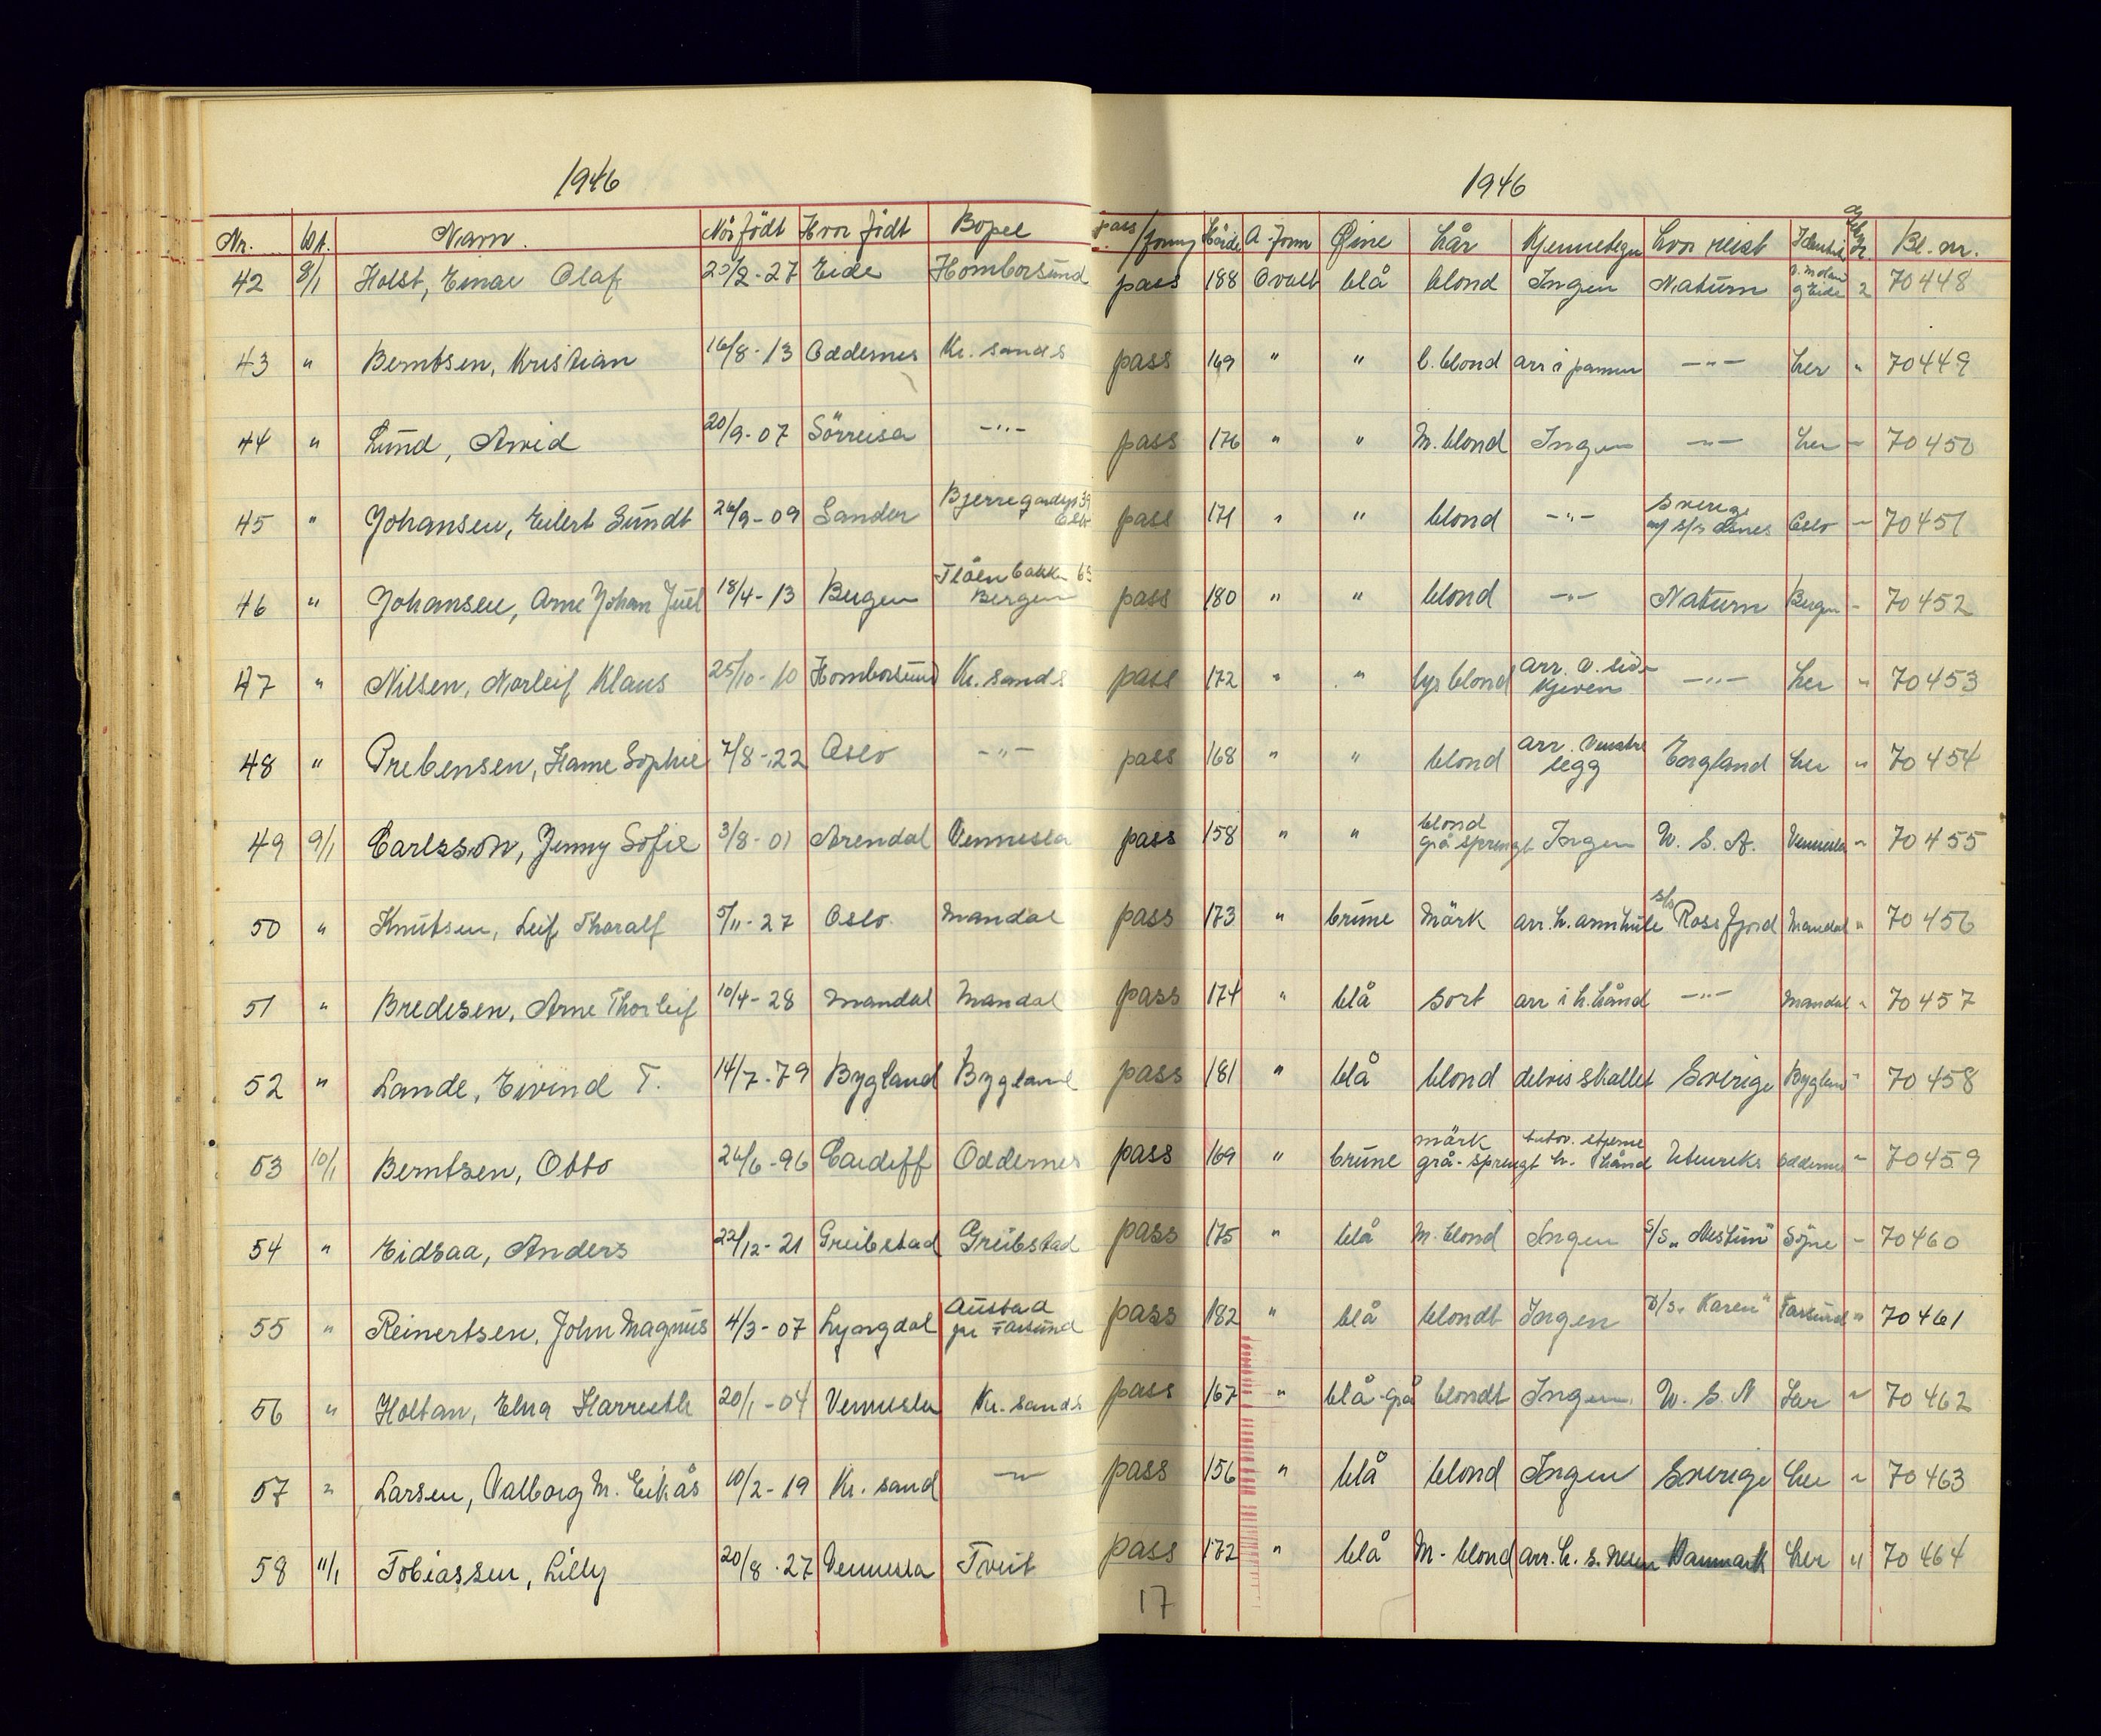 1946
1946
Nr. Dt. Navn. Når födt Hvor födt Bopel pass /forny Höide A-form Øine hår Kjennetegn hvor reist Bl. nr.
42 8/1 Holst, Einar Olaf 23/2-27 Eide Homborsund pass 188 Ovalt blå blond Ingen Naturn g Eide 2 70448
43 " Berntsen, Kristian 16/8-13 Oddernes Kr. sands pass 169 " " l. blond arr i pannen -"- her " 70449
44 " Lund, Arvid 20/9-07 Sörreisa -"- pass 176 " " M. blond Ingen -"- her - 70450
Bjerregardsgt 39 Sverige
45 " Johansen, Eilert Sundt 26/9-09 Sandar Oslo pass 171 " " blond -"- m/ s/s Oslo - 70451
Flöenbakken 65
46 " Johansen, Arne Johan Juel 18/4-13 Bergen Bergen pass 180 " " blond -"- Naturn Bergen - 70452
arr. v. side
47 " Nilsen, Norleif Klaus 25/10-10 Homborsund Kr. sands pass 172 " " lys blond kjeven -"- her " 70453
arr. venstre
48 " Prebensen, Hanne Sophie 7/8-22 Oslo -"- pass 168 " " blond legg England her " 70454
blond
49 9/1 Carlsson, Jenny Sofie 3/8-01 Arendal Vennesla pass 158 " " grå sprengt Ingen U. S. A. Vennesla " 70455
s/s
50 " Knutsen, Leif Thoralf 5/11-27 Oslo. Mandal pass 173 " brune Mörk arr. h. armhule Rossfjord Mandal " 70456
51 " Bredesen, Arne Thorleif 10/4-28 Mandal Mandal pass 174 " blå sort arr i h. hånd -"- Mandal " 70457
52 " Lande, Eivind T. 14/7-79 Bygland Bygland pass 181 " blå blond delvis skallet Sverige Bygland " 70458
mörk tatov. stjerne
53 10/1 Berntsen, Otto 26/6-96 Cardiff Oddernes pass 169 " brune grå-sprengt h. hånd Utenriks Oddernes " 70459
54 " Eidsaa, Anders 22/12-21 Greibstad Greibstad pass 175 " blå M. blond Ingen S/S "Nestun" Söjne - 70460
Austad
55 " Reinertsen, John Magnus 4/3-07 Lyngdal pr Farsund pass 182 " blå blondt Ingen D/S "Karen" Farsund " 70461
56 " Holtan, Elna Harrieth 20/1-04 Vennesla Kr. sands pass 167 " blå-grå blondt Ingen. U. S. A her " 70462
57 " Larsen, Valborg M. Eikås 10/2-19 Kr. sand -"- pass 156 " blå blond Ingen Sverige her " 70463
58 11/1 Tobiassen, Lilly 20/8-27 Vennesla Tveit pass 172 " blå M-blond arr. h. s. nesen Danmark her " 70464
17